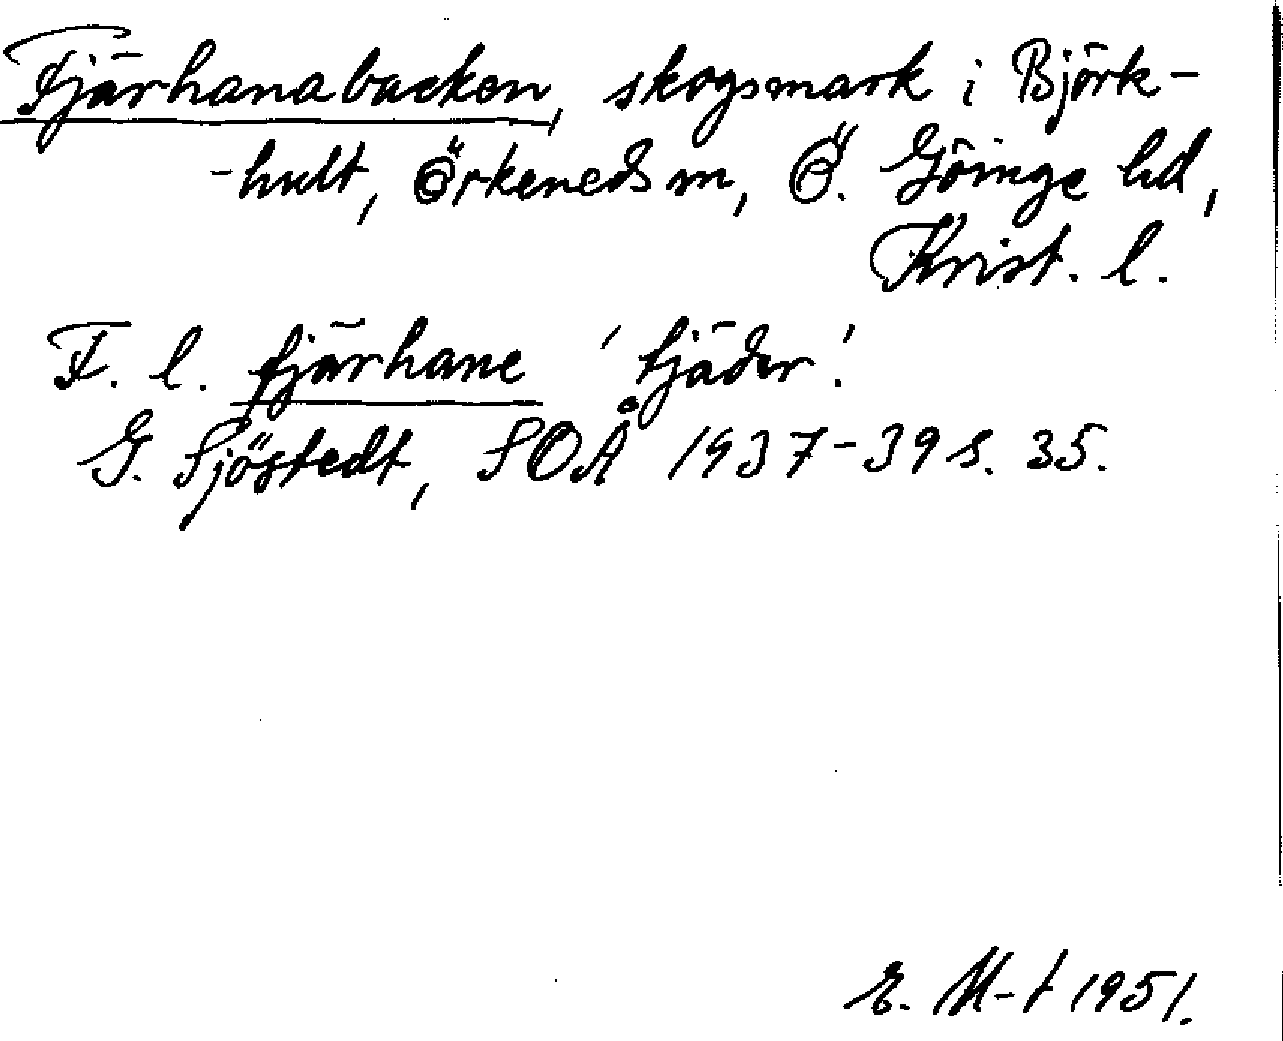 Fjärhanabacken, skogsmark i Björk-
-hult, Örkeneds sn, Ö. Göinge hd,
Krist. l.
F. l. fjärhane 'tjäder'.
G. Sjöstedt, SOÅ 1937-39 s. 35.
E. M-t 1951.